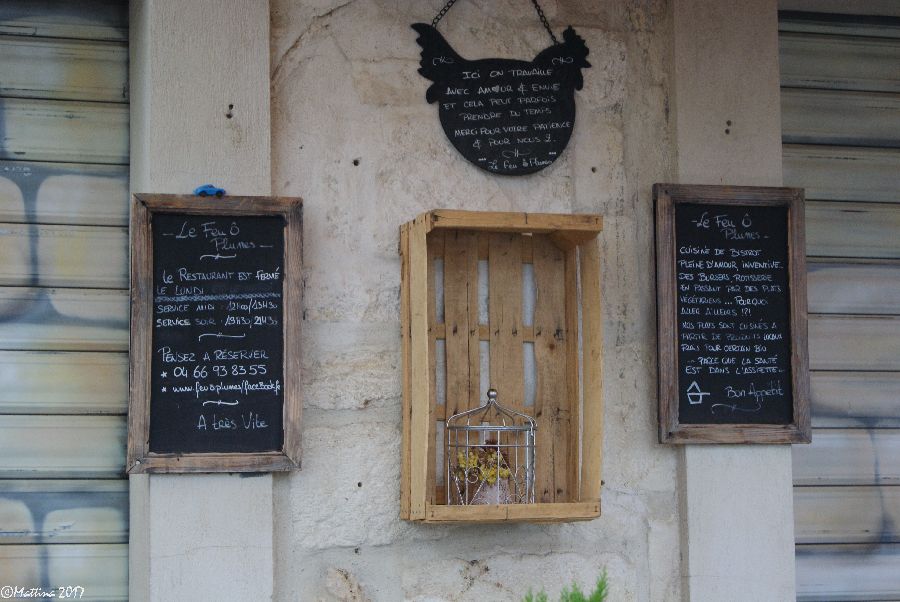 Ici on travaille
avec amour & envie
et cela peut parfois
prendre du temps
Merci pour votre patience
& pour nous 2.
Le Feu Ô Plumes
- Le Feu Ô
Plumes -
Le Restaurant est fermé
le lundi
Service midi : 12h00/13h30
Service soir : 19h30/21h30
Pensez à réserver
* 04 66 93 83 55
* www.feuoplumes/facebook.fr
A très Vite
- Le Feu Ô
Plumes -
Cuisine de Bistrot
pleine d'amour, inventive...
des burgers, rotisserie
en passant par des plats
végétariens ... Pourquoi
aller ailleurs !?!
Nos plats sont cuisinés à
partir de produits locaux
frais pour certain bio
- Parce que la santé
est dans l'assiette -
Bon Appétit
©Mattina 2017